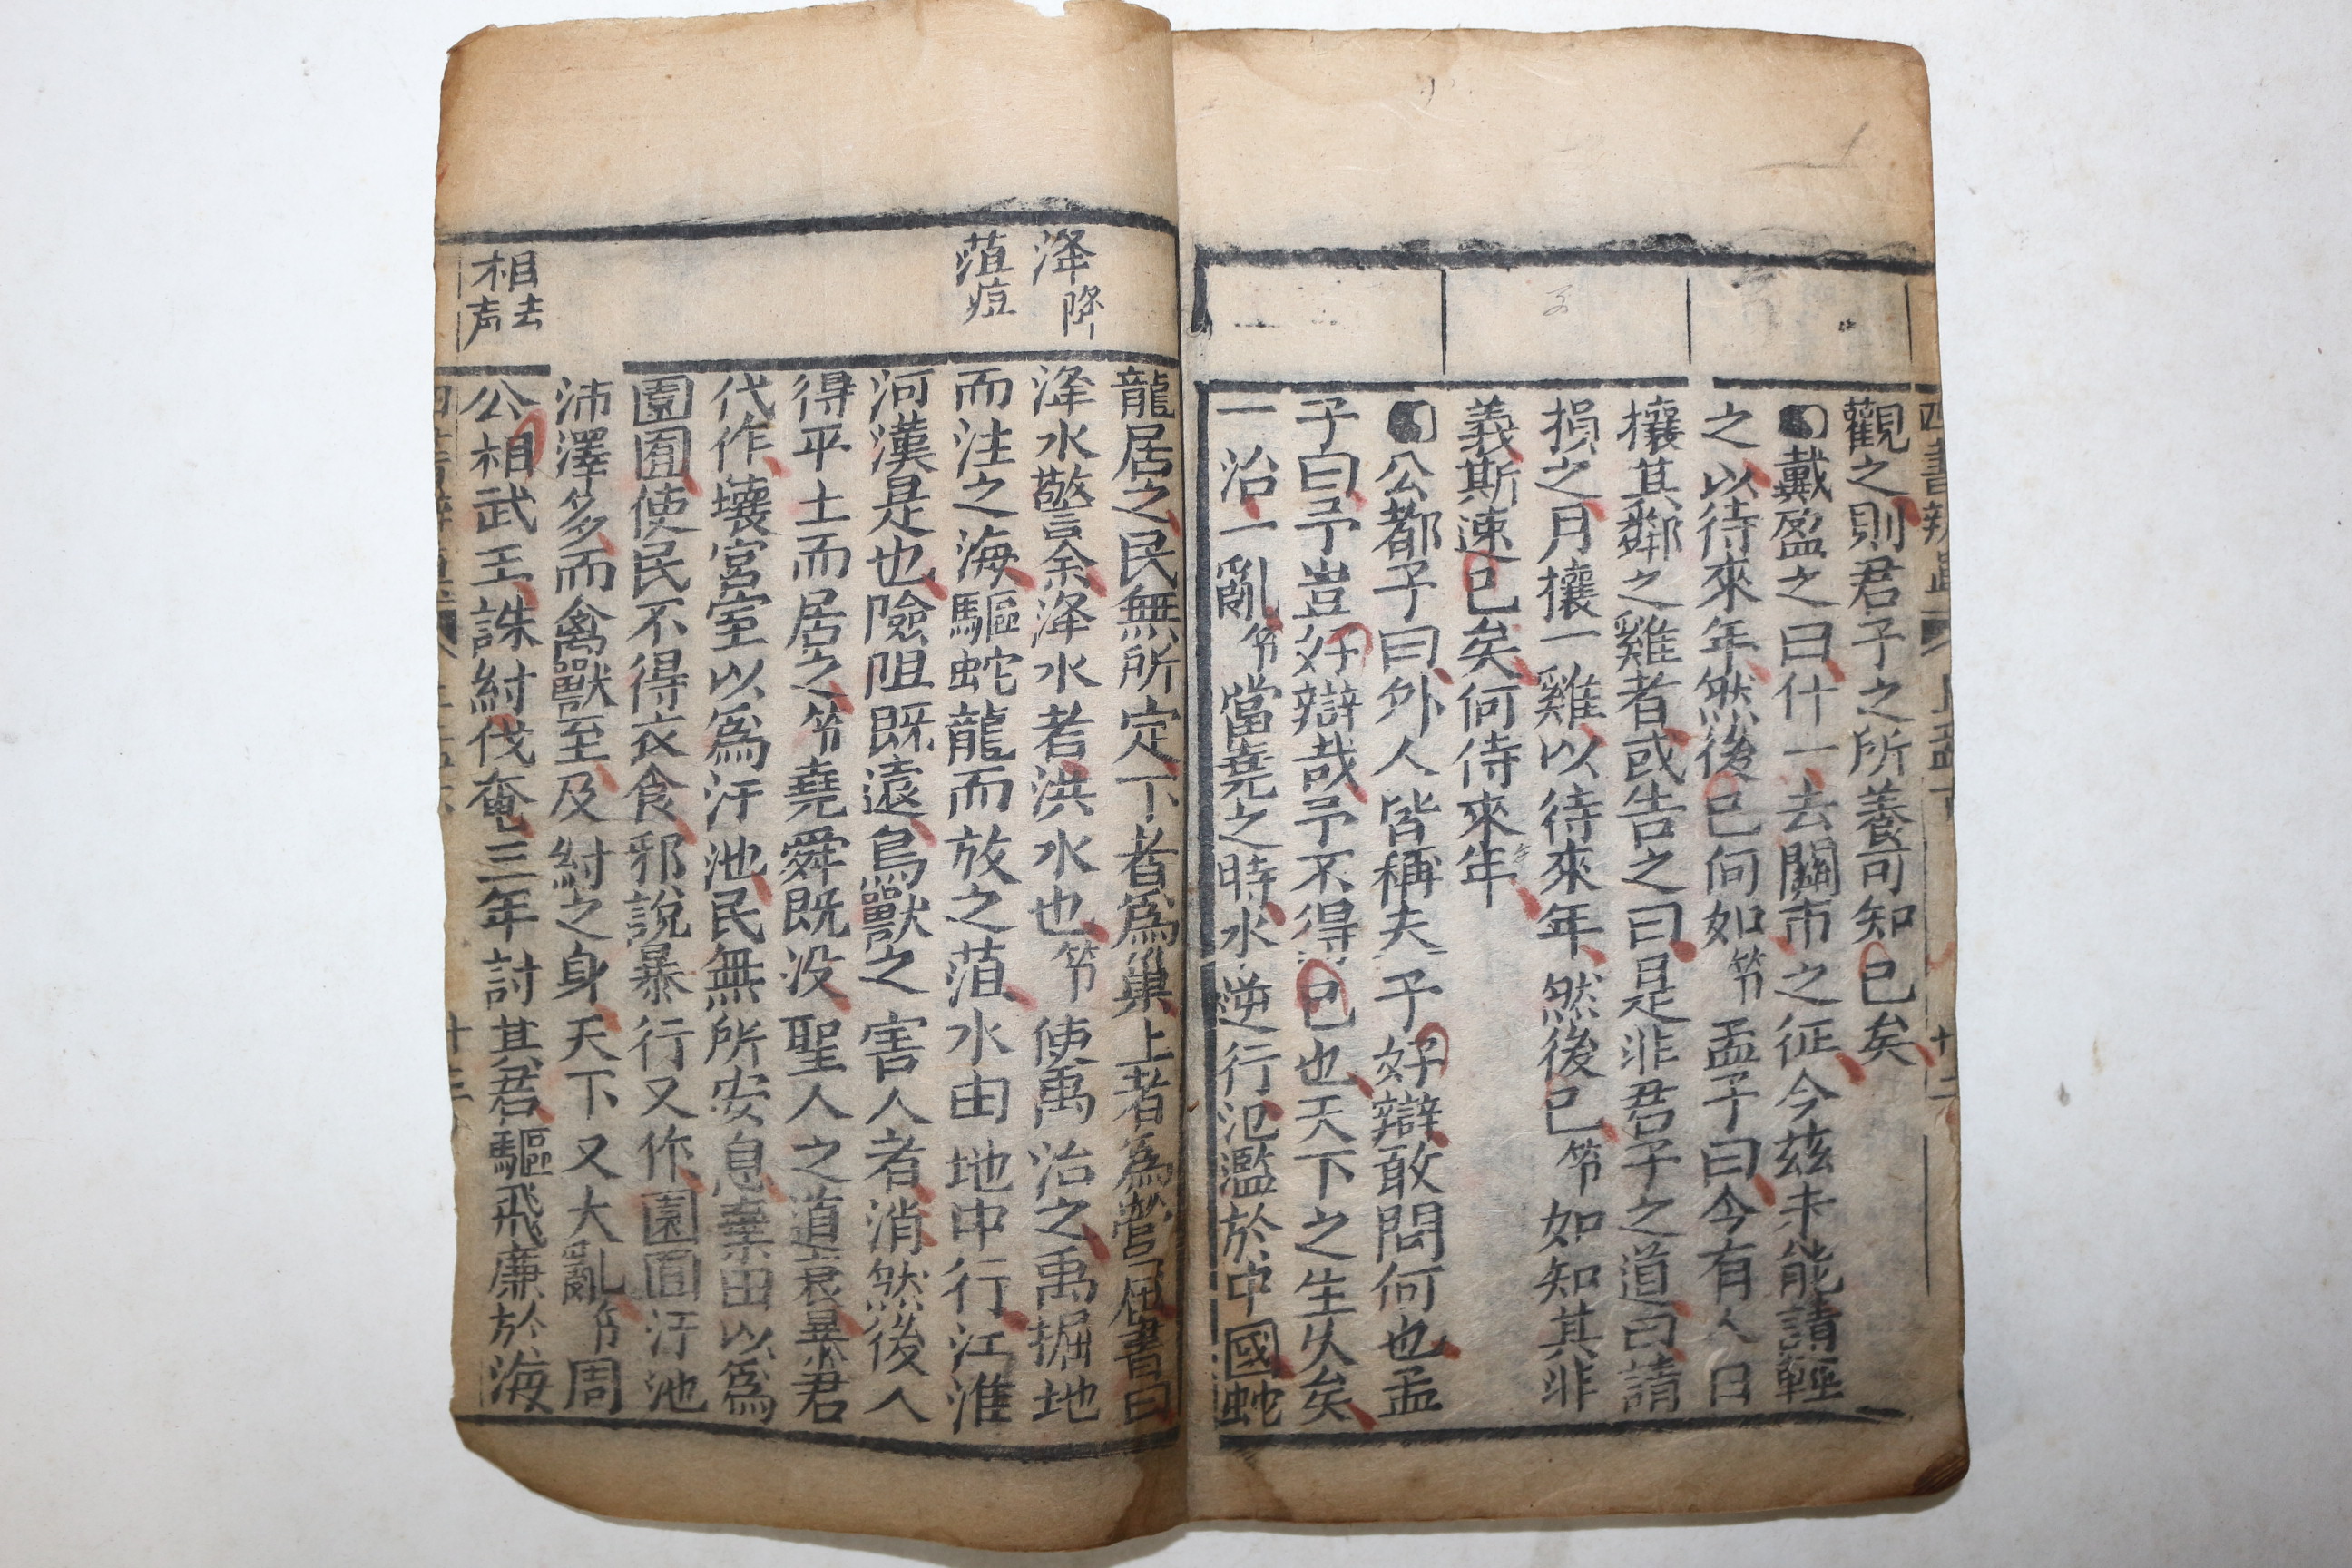 觀之則君子之所養可知已矣
戴盈之曰什一去關市之征今茲未能請輕
之以待來年然後已何如節孟子曰今有人日
攘其鄰之雞者或告之曰是非君子之道曰請
損之月攘一雞以待來年然後已節如知其非
義斯速已矣何待來年
公都子曰外人皆稱夫子好辯敢問何也孟
子曰予豈好辯哉予不得已也天下之生久矣
一治一亂節當堯之時水逆行氾濫於中國蛇
龍居之民無所定下者爲巢上者爲營屈書曰
洚水警余洚水者洪水也節使禹治之禹掘地
而注之海驅蛇龍而放之菹水由地中行江淮
河漢是也險阻既遠鳥獸之害人者消然後人
得平土而居之節堯舜既沒聖人之道衰暴君
代作壞宮室以爲汙池民無所安息棄田以爲
園囿使民不得衣食邪說暴行又作園囿汙池
沛澤多而禽獸至及紂之身天下又大亂節周
公相武王誅紂伐奄三年討其君驅飛廉於海
洚降
菹疽
相去声